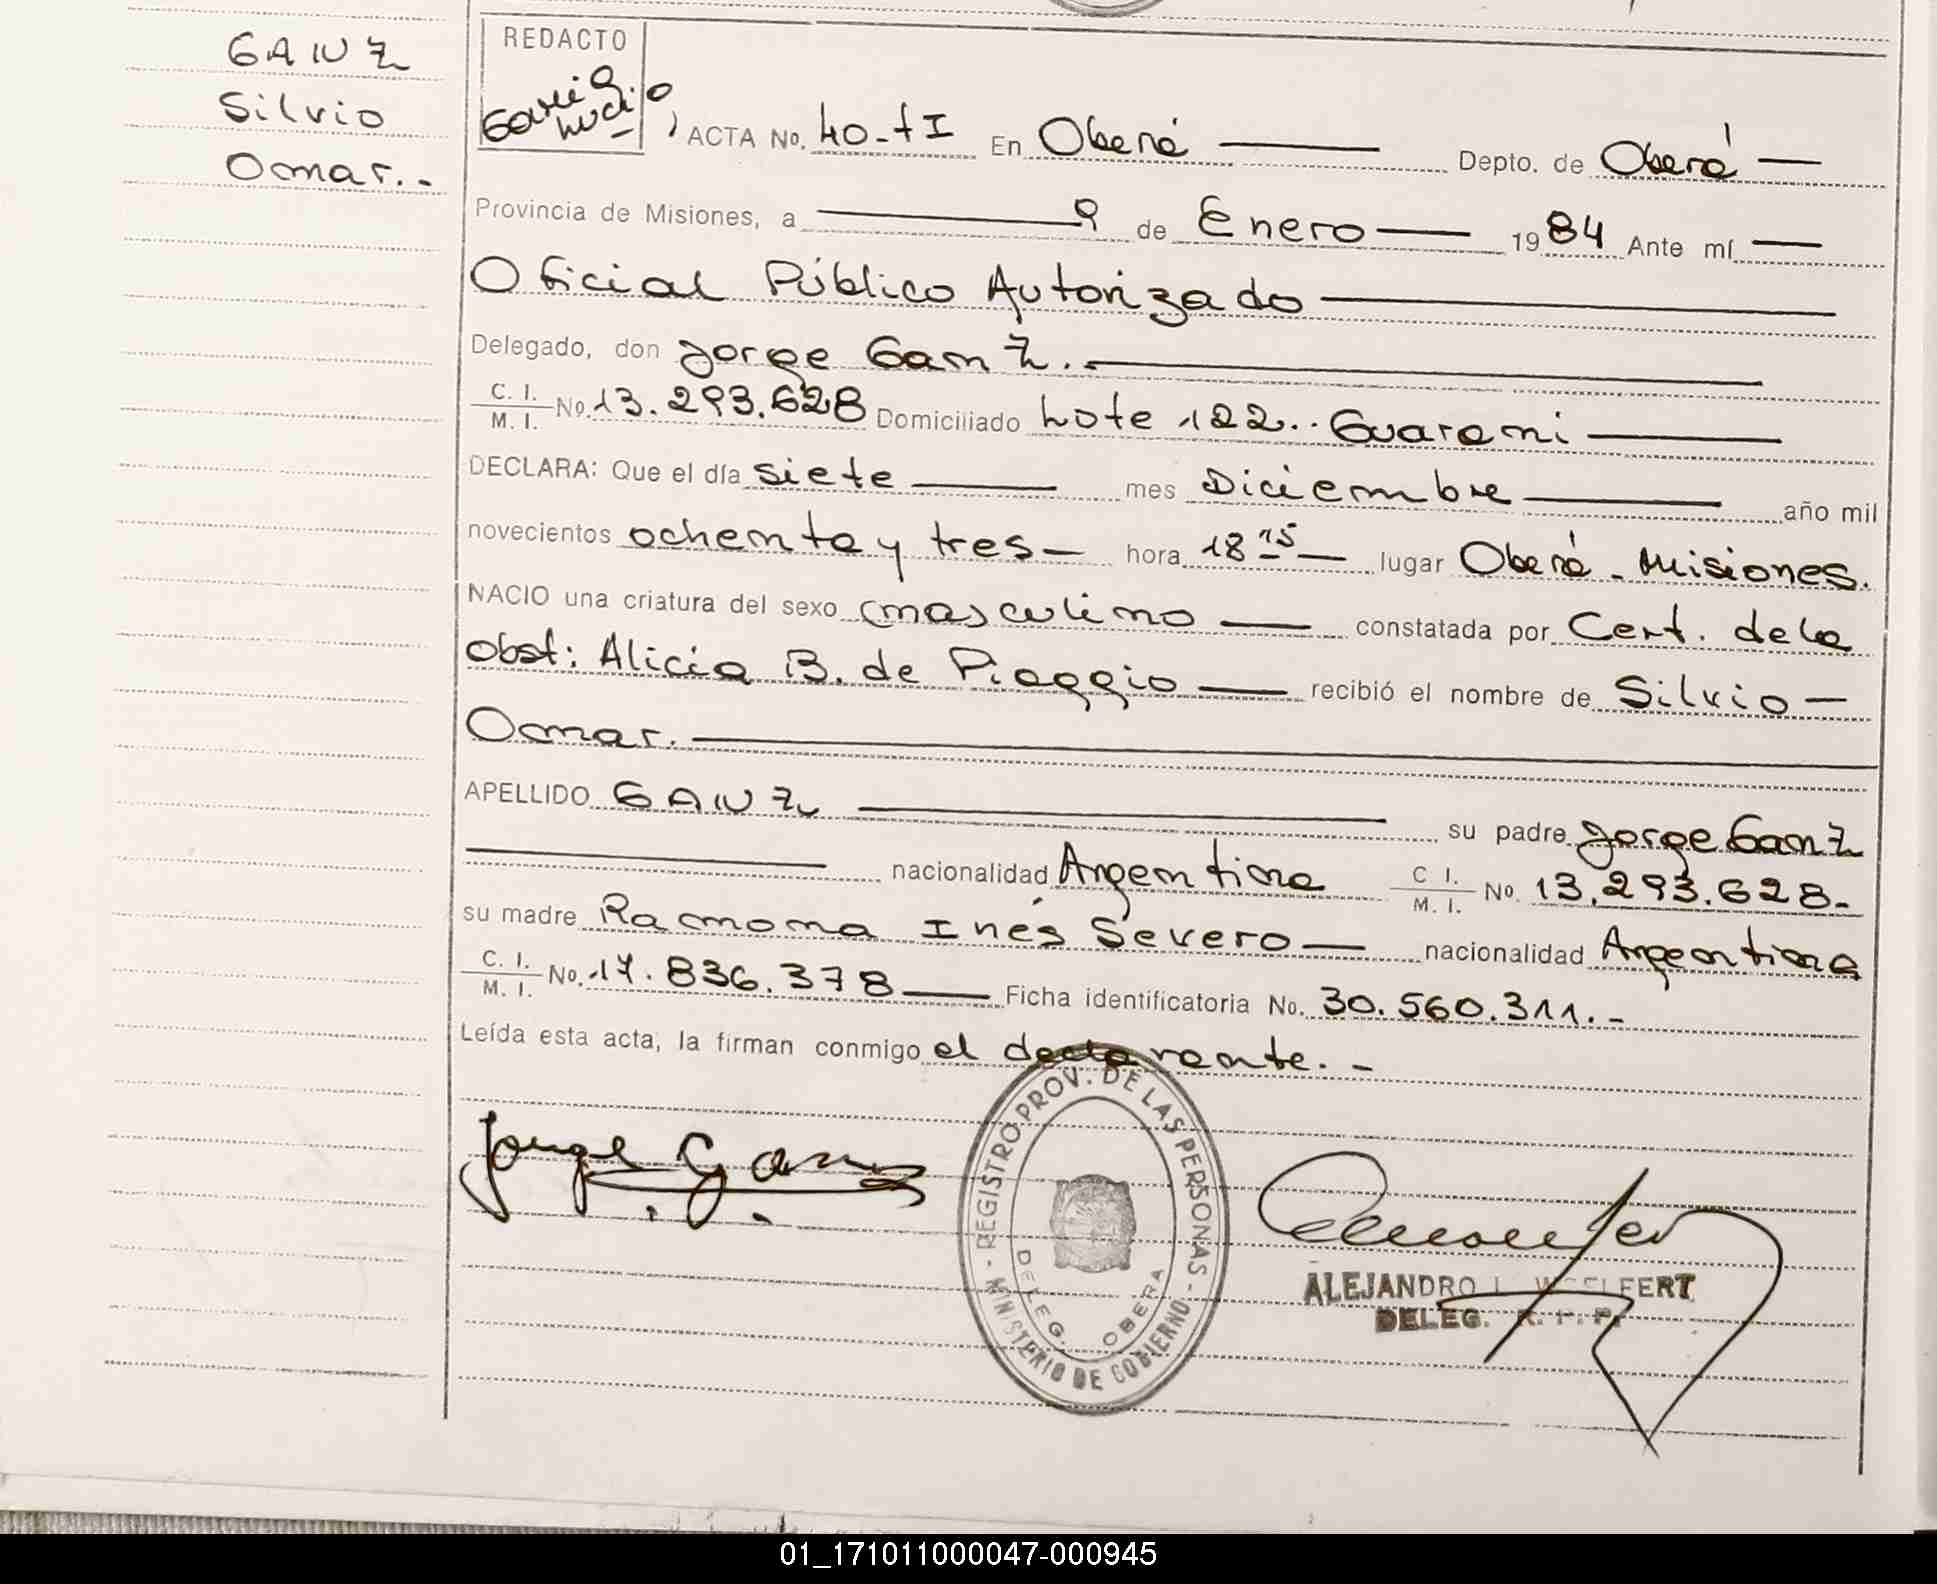 GANZ
Silvio
Omar.-
REDACTO
ACTA No. 40-tI En Oberá Depto. de Oberá
Provincia de Misiones, a 9 de Enero 1984 Ante mí
Oficial Público Autorizado
Delegado, don Jorge Ganz.-
C. I.
M. I. No. 13.293.628 Domiciliado Lote 122.. Guarani
DECLARA: Que el día siete mes Diciembre año mil
novecientos ochenta y tres- hora 18 15 lugar Oberá - Misiones.
NACIO una criatura del sexo masculino constatada por Cert. de la
obst: Alicia B. de Piaggio recibió el nombre de Silvio-
Omar.
APELLIDO GANZ su padre Jorge Ganz
nacionalidad Argentina C I.
M. I. No. 13.293.628.-
su madre Ramona Inés Severo nacionalidad Argentina
C. I.
M. I. No. 17.836.378 Ficha identificatoria No. 30.560.311.-
Leída esta acta, la firman conmigo el declarante.-
Jorge Ganz
REGISTRO PROV. DE LAS PERSONAS
DELEG. OBERA
MINISTERIO DE GOBIERNO
ALEJANDRO L. WOELFERT
DELEG. R. P. P.
01_171011000047-000945